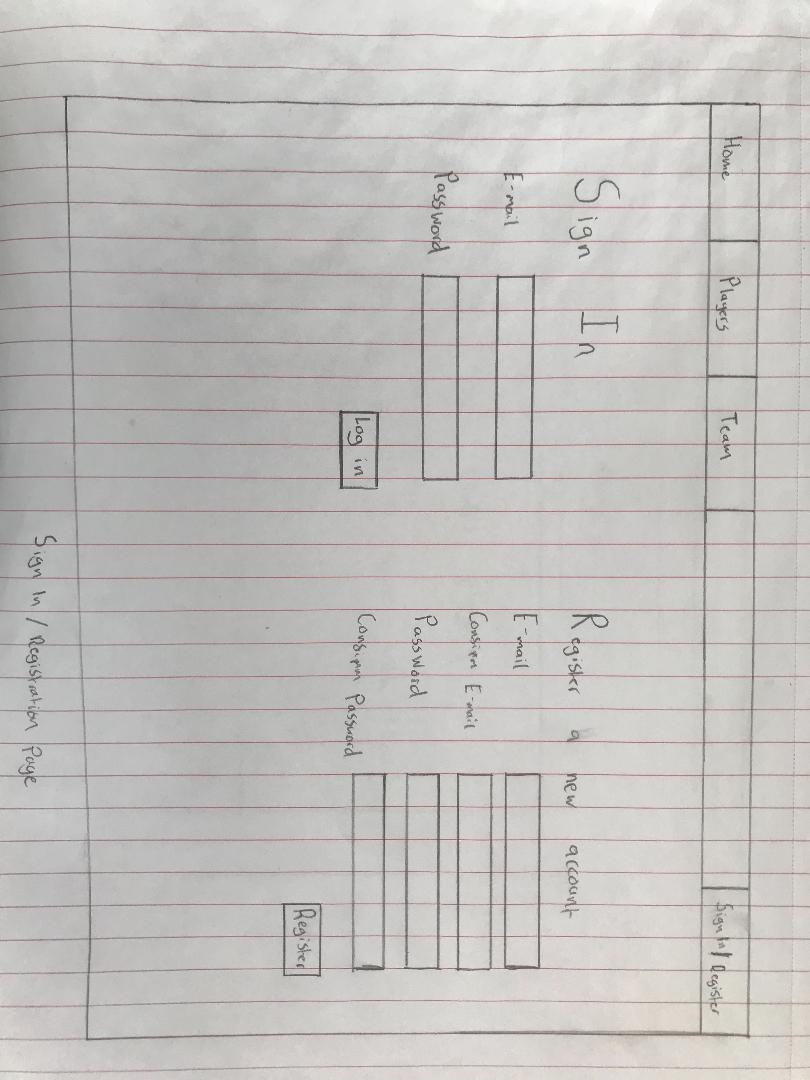 Home
Players
Team
Sign In / Register
Sign In
E-mail
Password
Log in
Register a new account
E-mail
Confirm E-mail
Password
Confirm Password
Register
Sign In / Registration Page